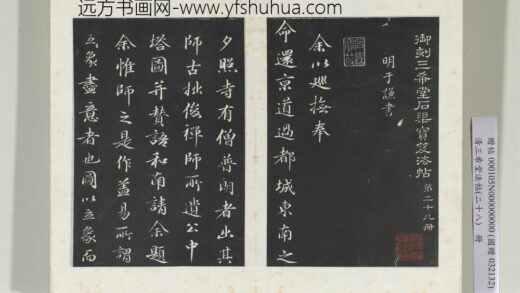 远方书画网-www.yfshuhua.com
御刻三希堂石渠寶笈法帖 第二十八册
明于謙書
余以廵撫奉
命還京道過都城東南之
夕照寺有僧普朗者出其
師古拙俊禪師所遺公中
塔圖并賛語和南請余題
余惟師之是作蓋易所謂
立象盡意者也圖以立象而
贈帖 000105N000000000 (國贈 032132)
清三希堂法帖(二十八) 册